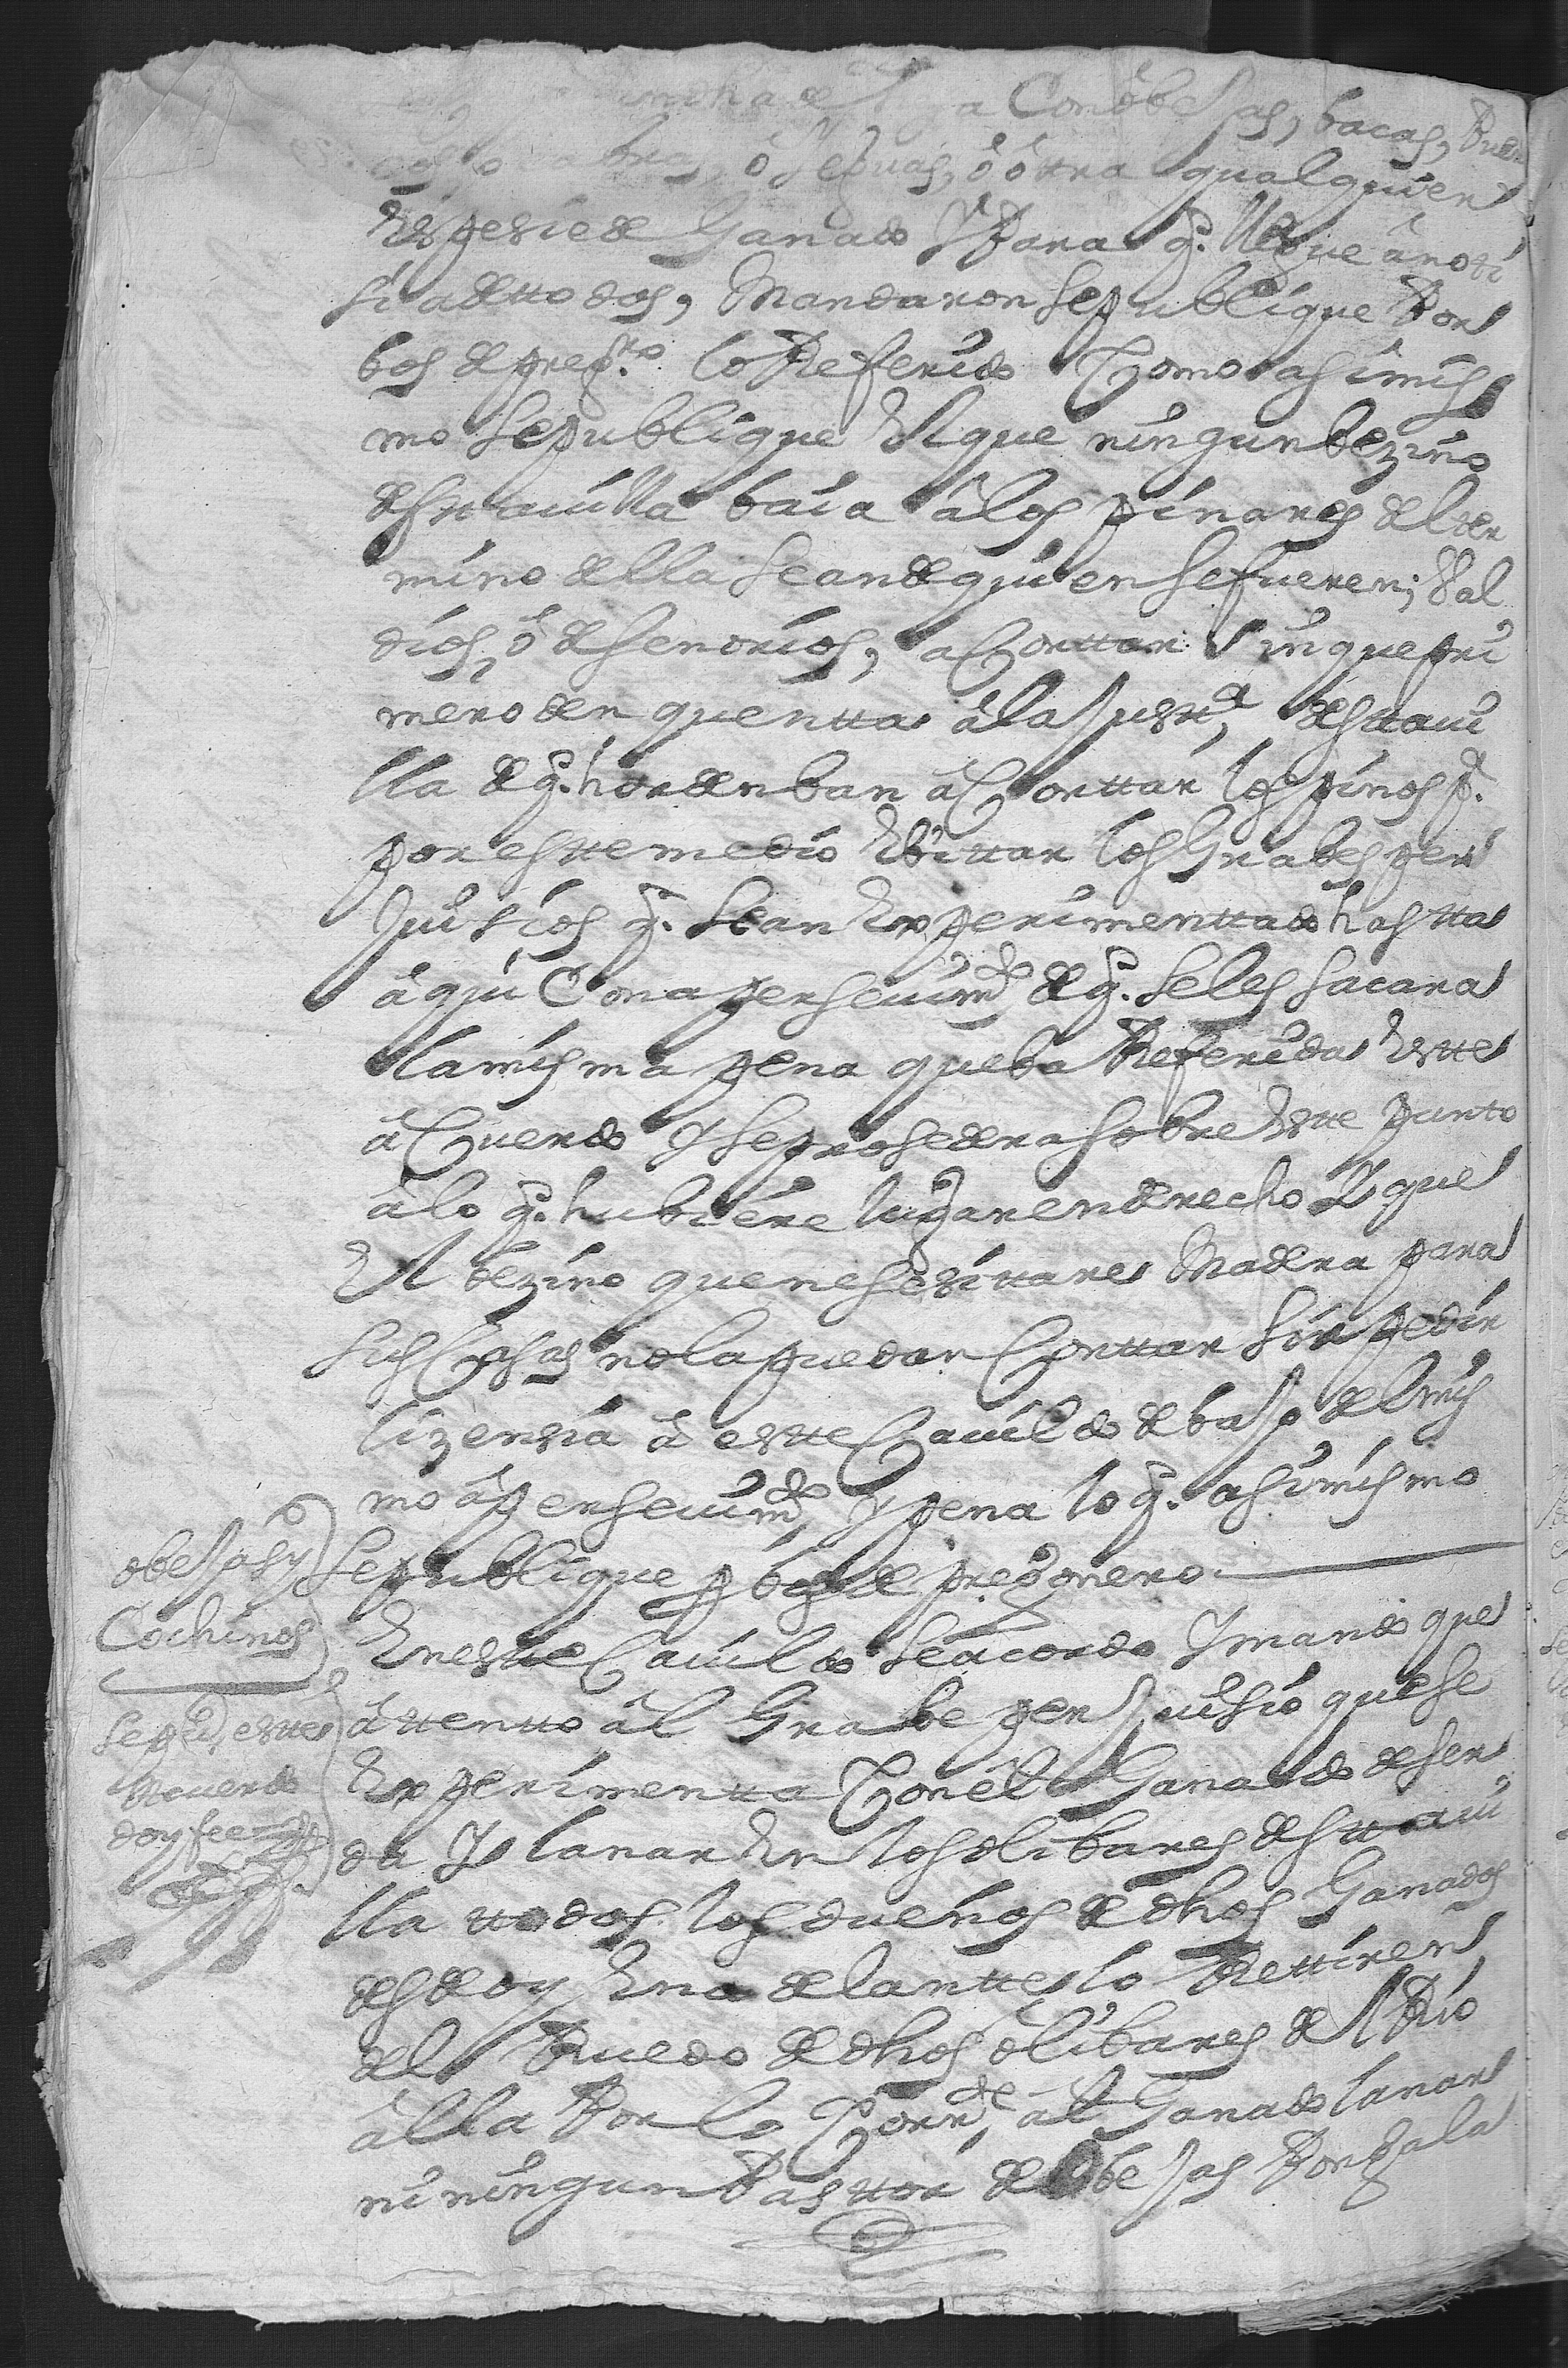 a Con obejas, bacas, Puer
cos, o cabras, ô Yeguas, ô ôttra qualquier
Espesie de Ganado Y Para q. llegue â noti
sia de ttodos, Mandaron se publique Por
bos de preg.ro lo Referido Como asimis
mo se publique El que ningun bezino
desta uilla baia â los pinares del ter
mino della sean de quien se fueren; Bal
dios, ô de senorios, a Corttar sin que pri
mero den quentta â la Justt.a desttaui
lla de q. horden ban â Corttar los pinos p.a
por estte medio Ebittar los Grabes per
Juisios q. sean Experimenttado hastta
âqui Con apersevim.do de q. se les sacara
la misma pena que ba Referida Estte
âCuerdo Y se prosedera sobre Estte punto
â lo q. hubiere lugar en derecho Y que
El bezino que nesesittare Madera para
sus Casas no la puedan Corttar sin pedir
lizensia â estte Cauildo debajo del mis
mo âpersevim.do Y pena lo q. asimismo
se publique p.r bos de pregonero
obejas y
Cochinos
En estte Cauildo se acordo Y mando que
âttentto âl Grabe perJuisio que se
Experimentta Con el Ganado de ser
da Y lanar En los olibares desttaui
lla ttodos los dueños de dhos Ganados
desde oy En adelantte lo Rettiren
del Ruedo de dhos olibares del Rio
âlla Por lo Corr.te al Ganado lanar
ni ningun Pasttor de Obejas Ponga la
se pu.co estte
Acuerdo
doy fee